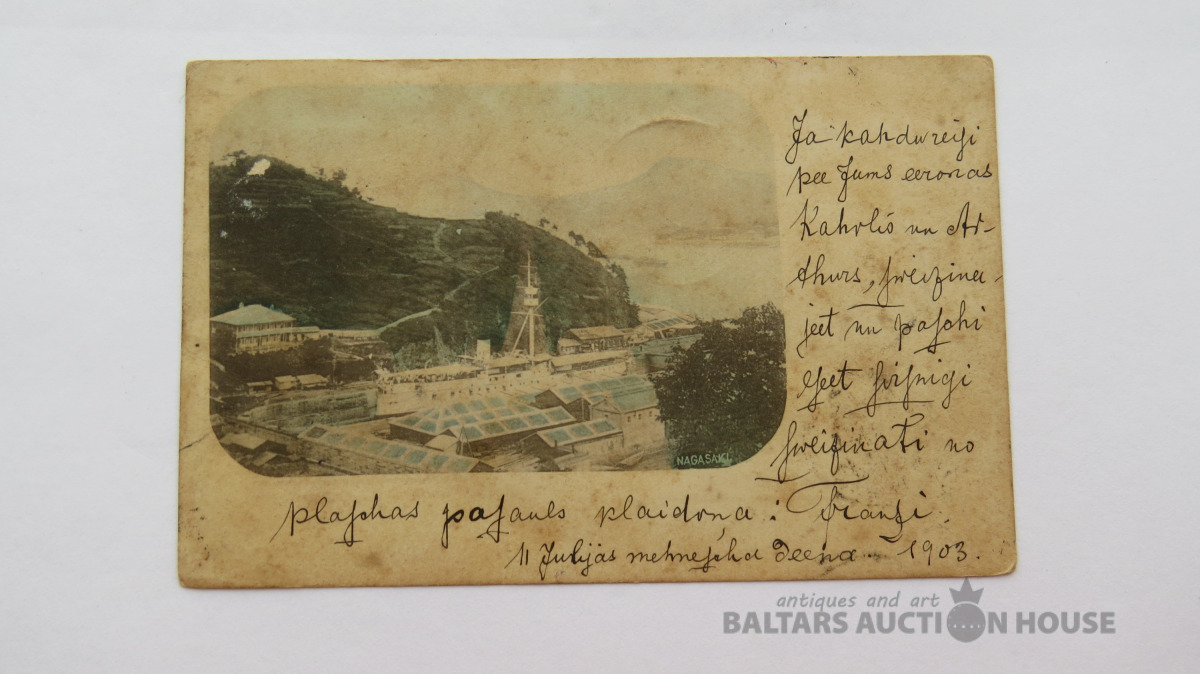 Ja kahdureisi
pee Jums eeronas
Kahrlis un Ar-
thurs, sweizina-
jeet un paschi
eseet sirsnigi
sweizinati no
plaschas pasaules plaidoņa:
11 Julijas mehnescha deena 1903.
NAGASAKI.
antiques and art
BALTARS AUCTION HOUSE